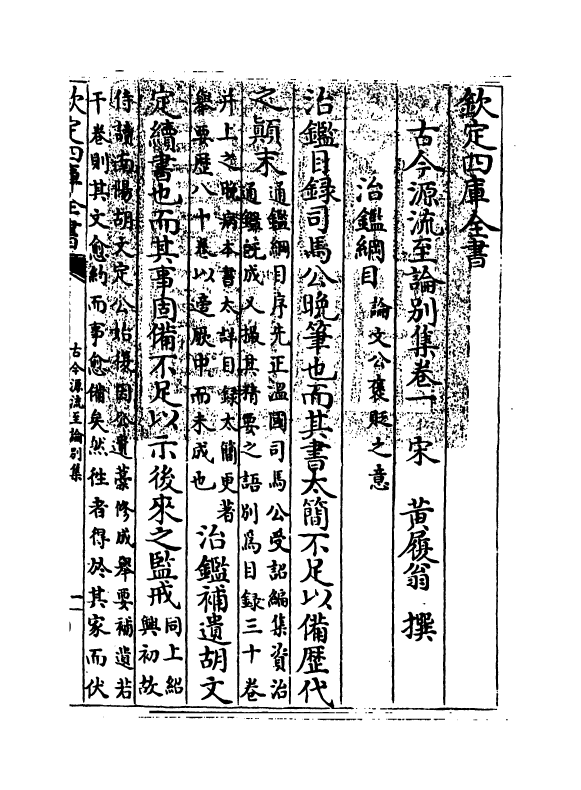 欽定四庫全書
古今源流至論別集卷一 宋 黃履翁 撰
治鑑綱目 論文公褒貶之意
治鑑目錄司馬公晚筆也而其書太簡不足以備歷代
之顛末
通鑑綱目序先正溫國司馬公受詔編集資治
通鑑既成又撮其精要之語別爲目錄三十卷
并上之晚病本書太詳目錄太簡更著
舉要歷八十卷以適厥中而未成也
治鑑補遺胡文
定續書也而其事固備不足以示後來之監戒
同上紹
興初故
侍讀南陽胡文定公始復因公遺藁修成舉要補遺若
干卷則其文愈約而事愈備矣然徃者得於其家而伏
欽定四庫全書
古今源流至論別集
一